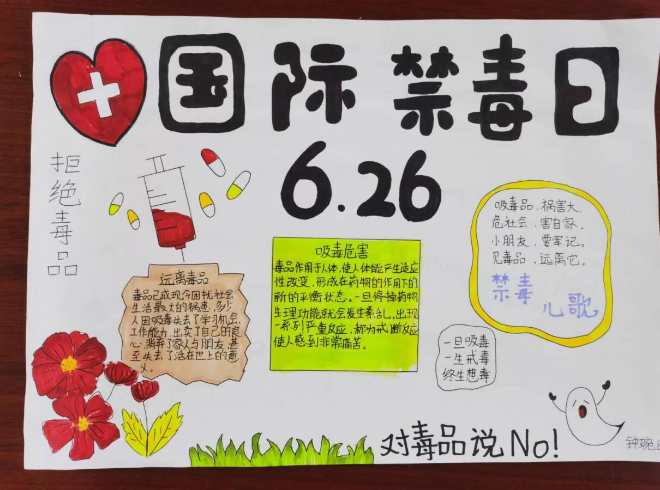 国际禁毒日
6.26
拒绝毒品
远离毒品
毒品已成现今困扰社会
生活最大的祸患,多少
人因吸毒失去了学习机会
工作能力,出卖了自己的良
心,抛弃了家人与朋友,甚
至失去了活在世上的意
义。
吸毒危害
毒品作用于人体,使人体能产生适应
性改变,形成在药物的作用下的
新的平衡状态。一旦停掉药物,
生理功能就会发生紊乱,出现
一系列严重反应,称为戒断反应
使人感到非常痛苦。
吸毒品、祸害大,
危社会、害自家,
小朋友、要牢记。
见毒品、远离它。
禁毒
儿歌
一旦吸毒
一生戒毒
终生想毒
对毒品说No!
钟婉